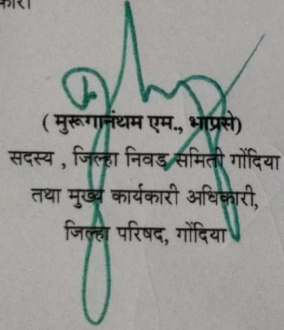 कारी
( मुरूगानंथम एम., भाप्रसे)
सदस्य , जिल्हा निवड समिती गोंदिया
तथा मुख्य कार्यकारी अधिकारी,
जिल्हा परिषद, गोंदिया